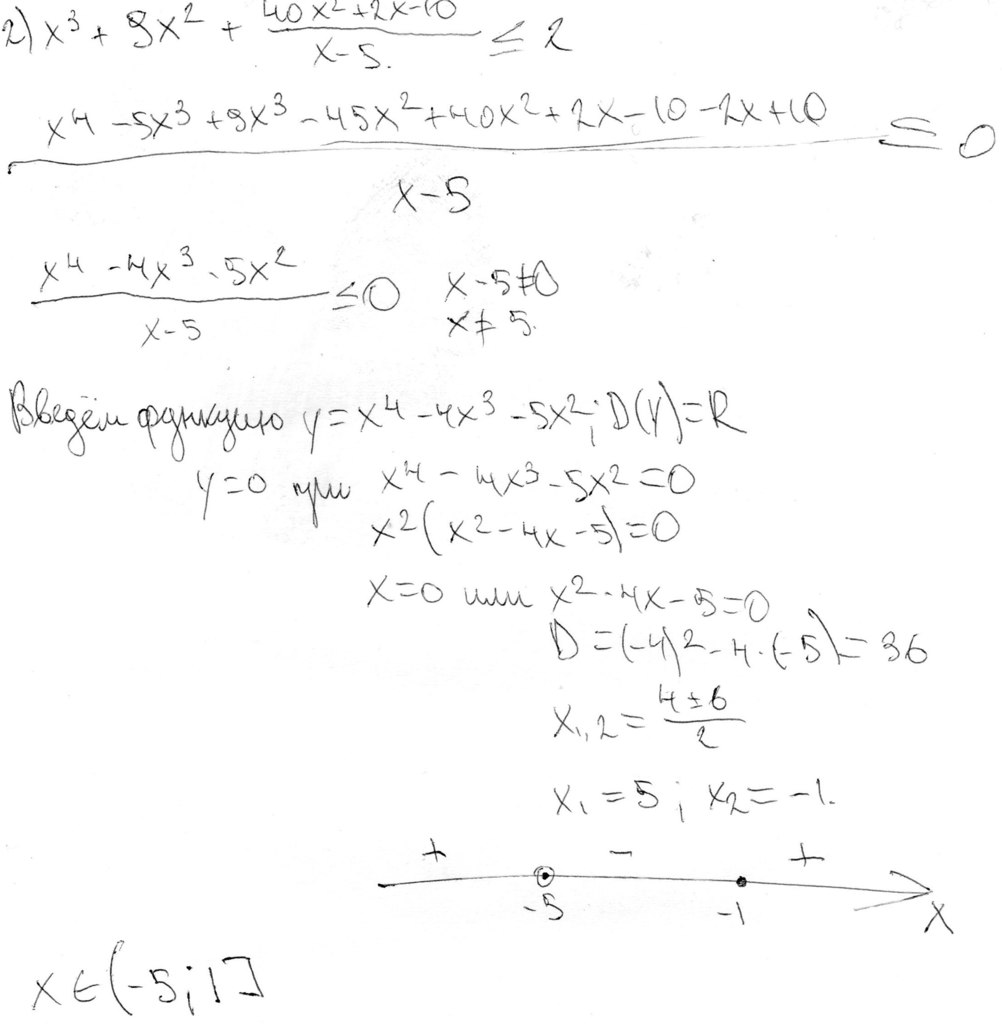 2) x³ + 9x² + (40x²+2x-10)/(x-5.) ≤ 2
(x⁴ - 5x³ + 9x³ - 45x² + 40x² + 2x - 10 - 2x + 10)/(x-5) ≤ 0
(x⁴ - 4x³ - 5x²)/(x-5) ≤ 0 x-5≠0
x≠5.
Введём функцию y = x⁴ - 4x³ - 5x²; D(y)=R
y=0 при x⁴ - 4x³ - 5x² = 0
x²(x² - 4x - 5) = 0
x=0 или x² - 4x - 5 = 0
D = (-4)² - 4·(-5) = 36
x₁,₂ = (4±6)/2
x₁ = 5; x₂ = -1.
+ - +
-5 -1 x
x ∈ (-5; 1]